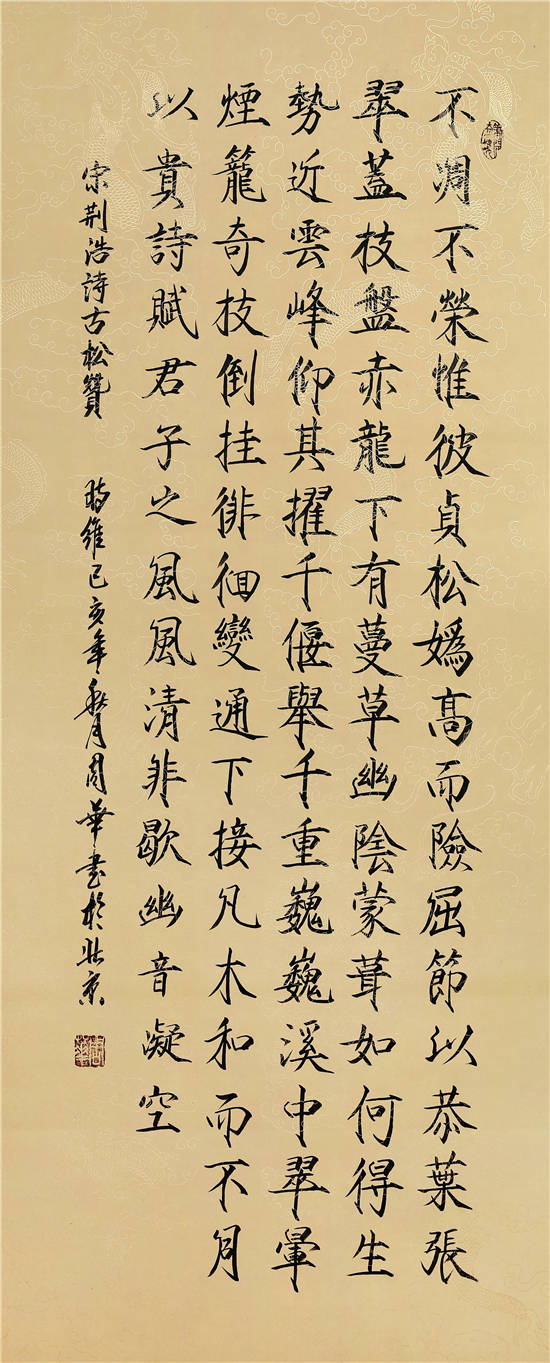 不凋不榮惟彼貞松媯高而險屈節以恭葉張
翠蓋枝盤赤龍下有蔓草幽陰蒙茸如何得生
勢近雲峰仰其擢千偃舉千重巍巍溪中翠暈
煙籠奇枝倒挂徘徊變通下接凡木和而不同
以貴詩賦君子之風風清非歇幽音凝空
宋荆浩詩古松贊 時維己亥年秋月周華書於北京